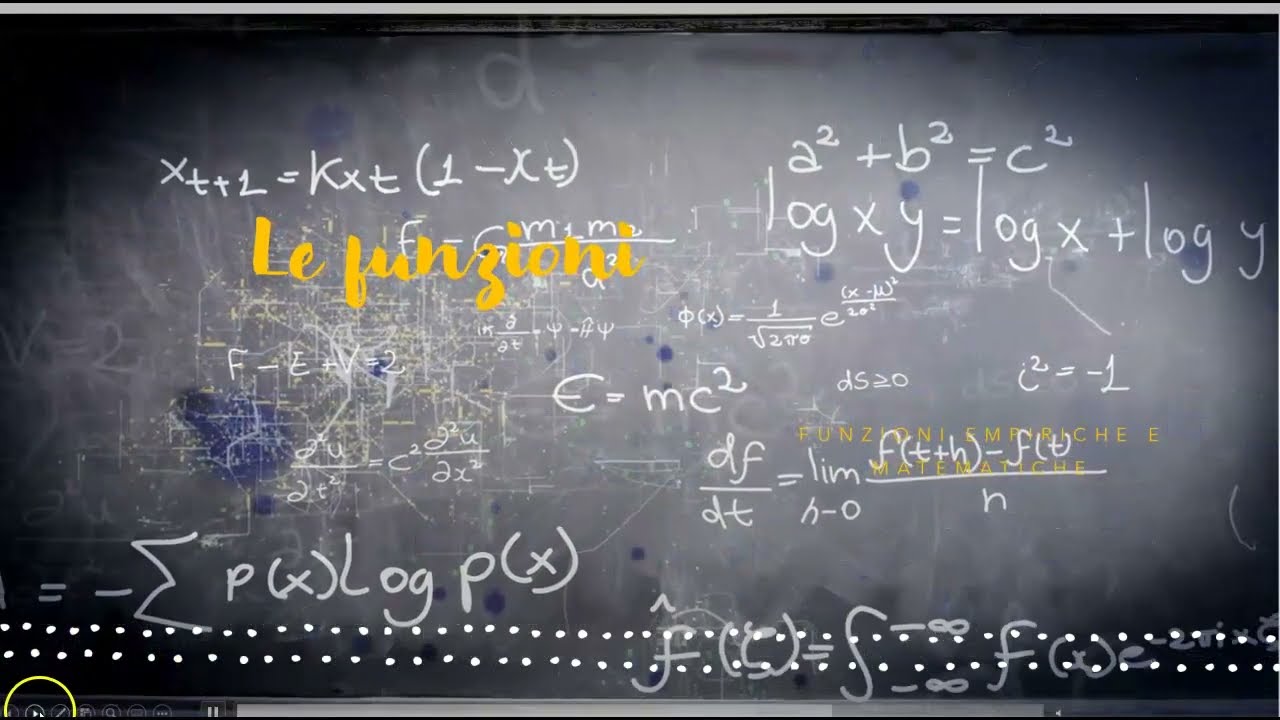 x_{t+1} = k x t (1 - x t)
a² + b² = c²
log x y = log x + log y
Le funzioni
Φ(x) = 1/√2πσ e^{(x-μ)²/2σ²}
F - E + V = 2
V = 2
E = mc²
ds ≥ 0
i² = -1
FUNZIONI EMPIRICHE E
MATEMATICHE
∂²u/∂t² = c² ∂²u/∂x²
df/dt = lim h-0 f(t+h) - f(t)/h
= -∑ p(x) log p(x)
f̂(ζ) = ∫ -∞ -∞ f(x) e^{-2πixζ}